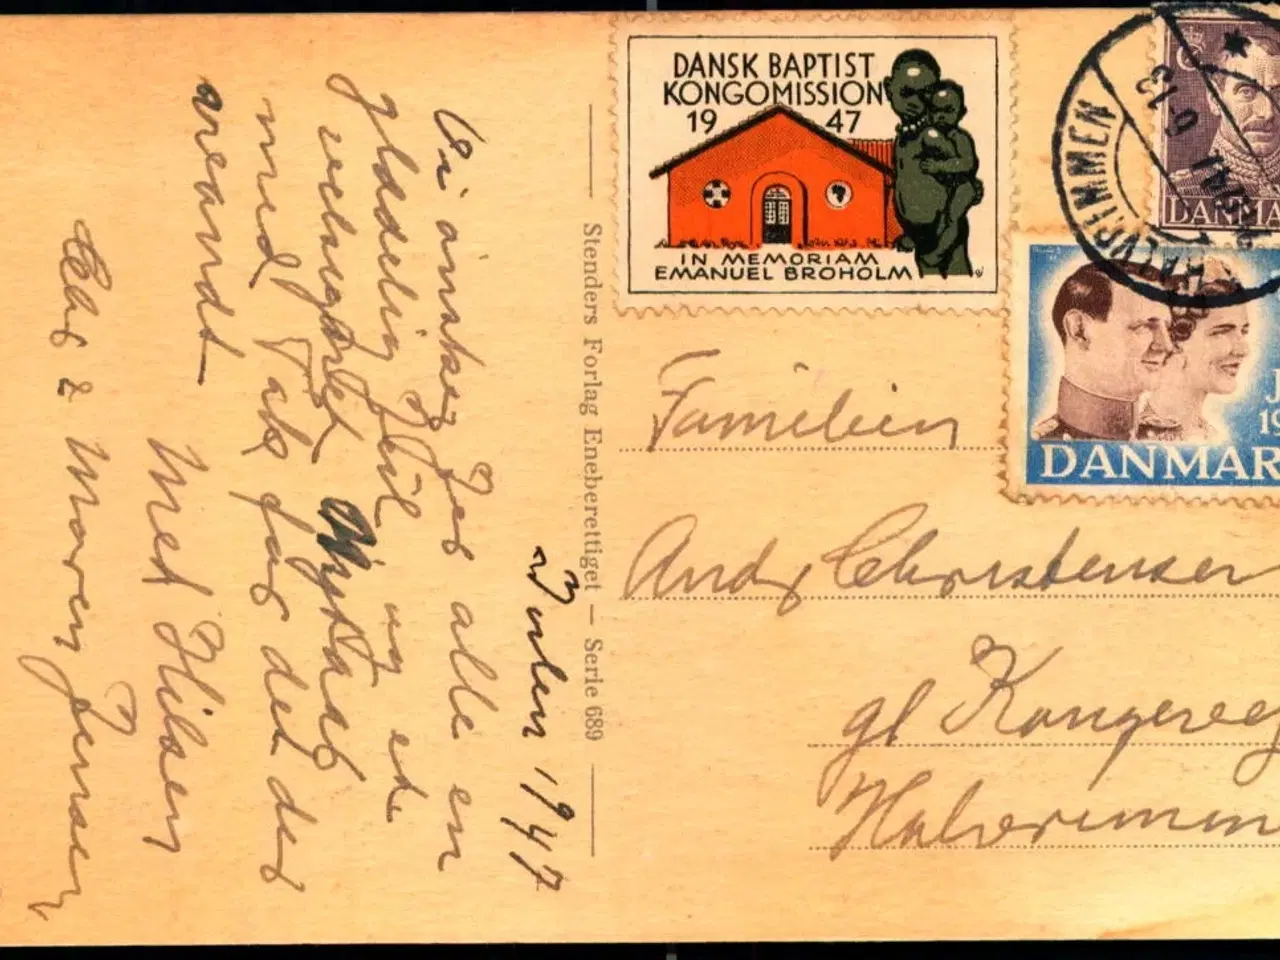 Julen 1947
Vi ønsker Jer alle en
glædelig Jul og et
velsignet Nytaar
med Tak for det der
svandt
Med Hilsen
& Maren Jensen
Stenders Forlag Eneberettiget — Serie 689
DANSK BAPTIST
KONGOMISSION
19 47
IN MEMORIAM
EMANUEL BROHOLM
HALVRIMMEN
13 9
DANMA
DANMAR
Familien
Andr Christensen
gl Kongevej
Halvrimm